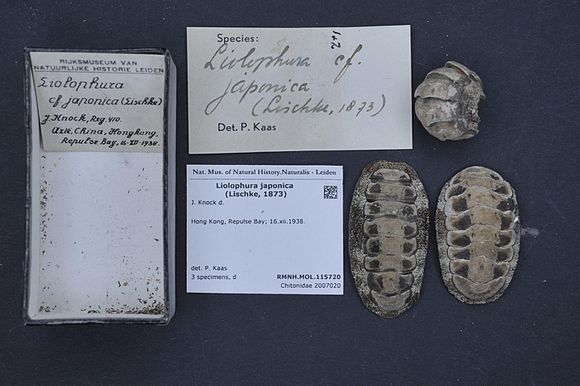 RIJKSMUSEUM VAN
NATUURLIJKE HISTORIE LEIDEN
Liolophura
cf japonica (Lischke)
J. Knock, Reg. 410.
Azië, China, Hongkong,
Repulse Bay, 16-XII-1938.
Species:
1+2
Liolophura cf.
japonica
(Lischke, 1873)
Det. P. Kaas
Nat. Mus. of Natural History.Naturalis - Leiden
Liolophura japonica
(Lischke, 1873)
J. Knock d.
Hong Kong, Repulse Bay; 16.xii.1938.
det. P. Kaas
3 specimens, d
RMNH.MOL.115720
Chitonidae 2007020